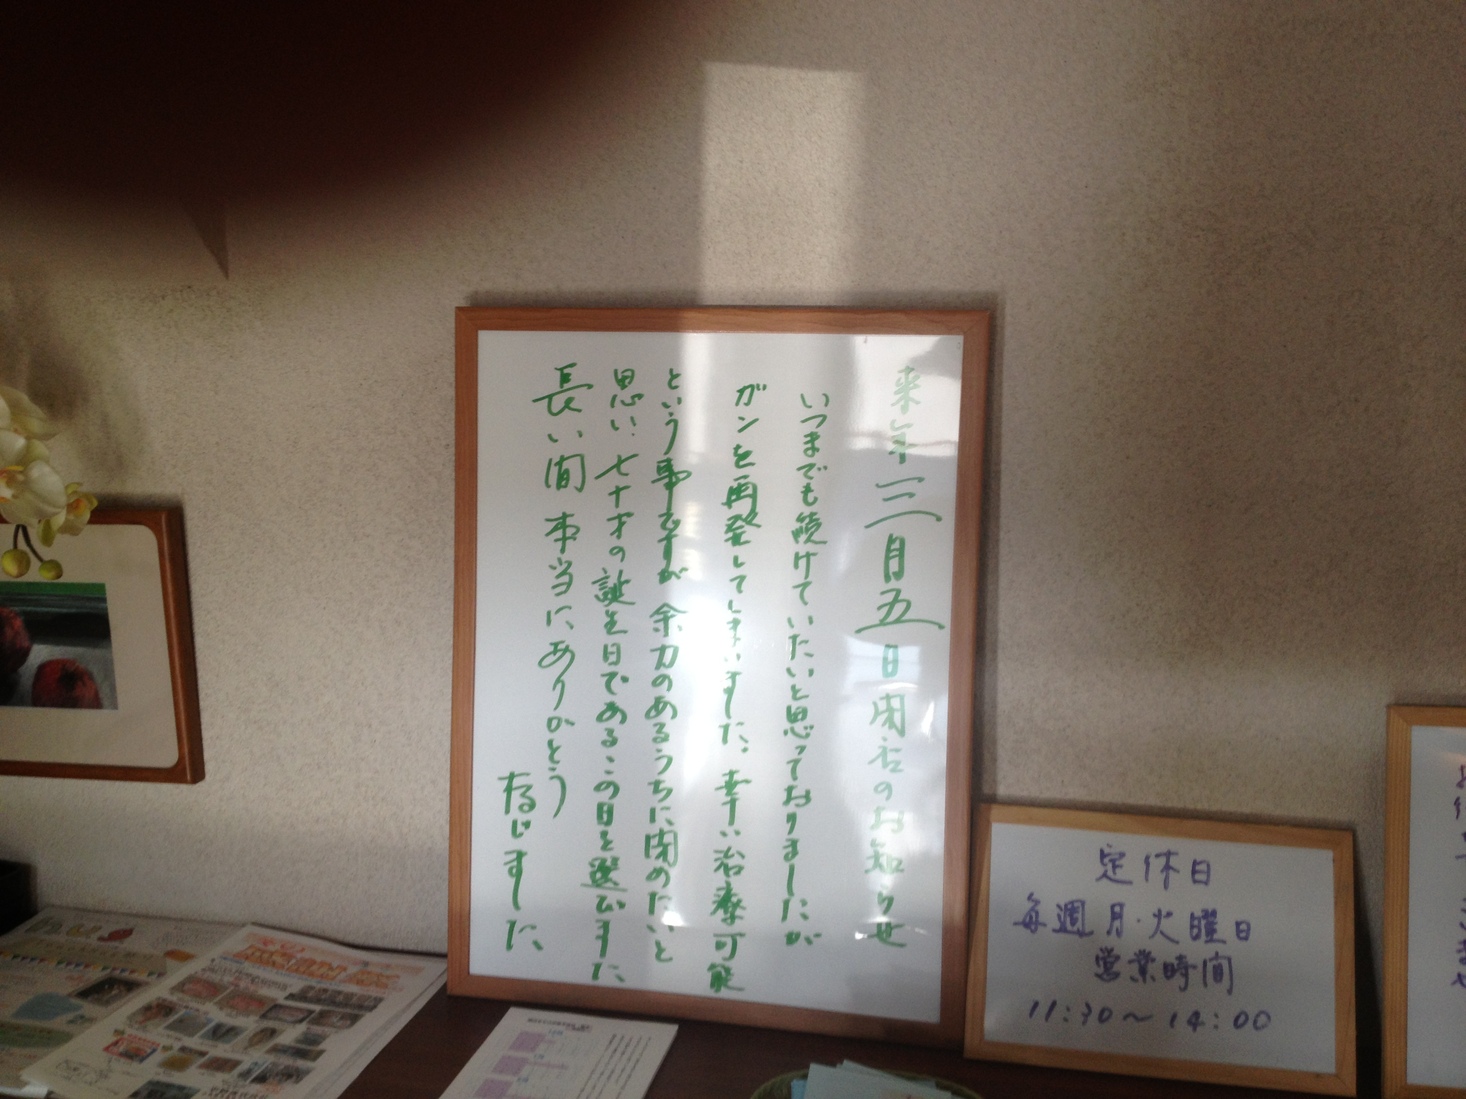 来年三月五日閉店のお知らせ
いつまでも続けていたいと思っておりましたが
ガンを再発してしまいました。幸い治療可能
という事ですが 余力のあるうちに閉めたいと
思い、七十才の誕生日であるこの日を選びました
長い間 本当に、ありがとう
ました、
定休日
毎週月・火曜日
営業時間
11:30～14:00